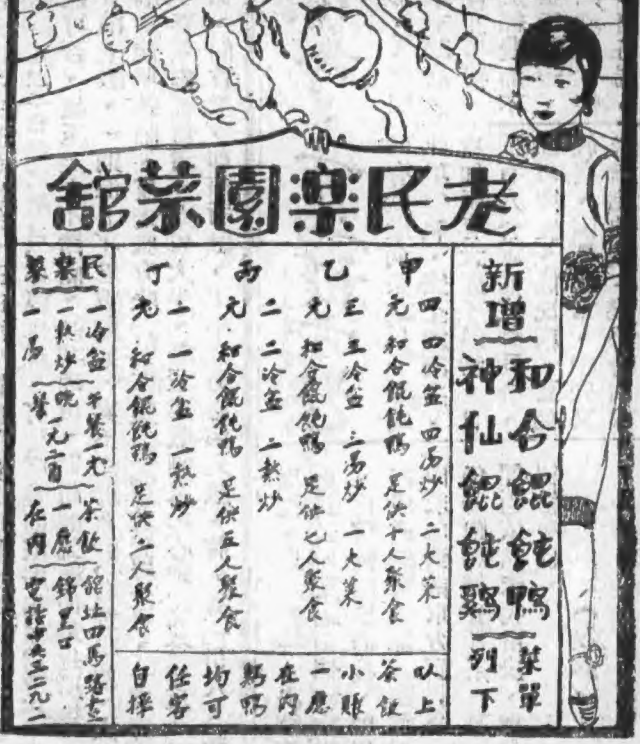 老民楽園菜館
新增
和合餛飩鴨
神仙餛飩鷄
菜單
列下
甲
四 四冷盆 四湯炒 二大菜
元 和合餛飩鴨 足供十人聚食
乙
三 三冷盆 三湯炒 一大菜
元 和合餛飩鴨 足供七人聚食
丙
二 二冷盆 二熱炒
元 和合餛飩鴨 足供五人聚食
丁
一冷盆 一熱炒
元 和合餛飩鴨 足供二人聚食
以上
茶飲
小賬
一應
在内
鷄鴨
均可
任客
自擇
民樂菜
一冷盆
一熱炒
一湯
午餐一元
晚餐一元二角
茶飲
一應
在内
館址四馬路畫
錦里口
電話中央二九一